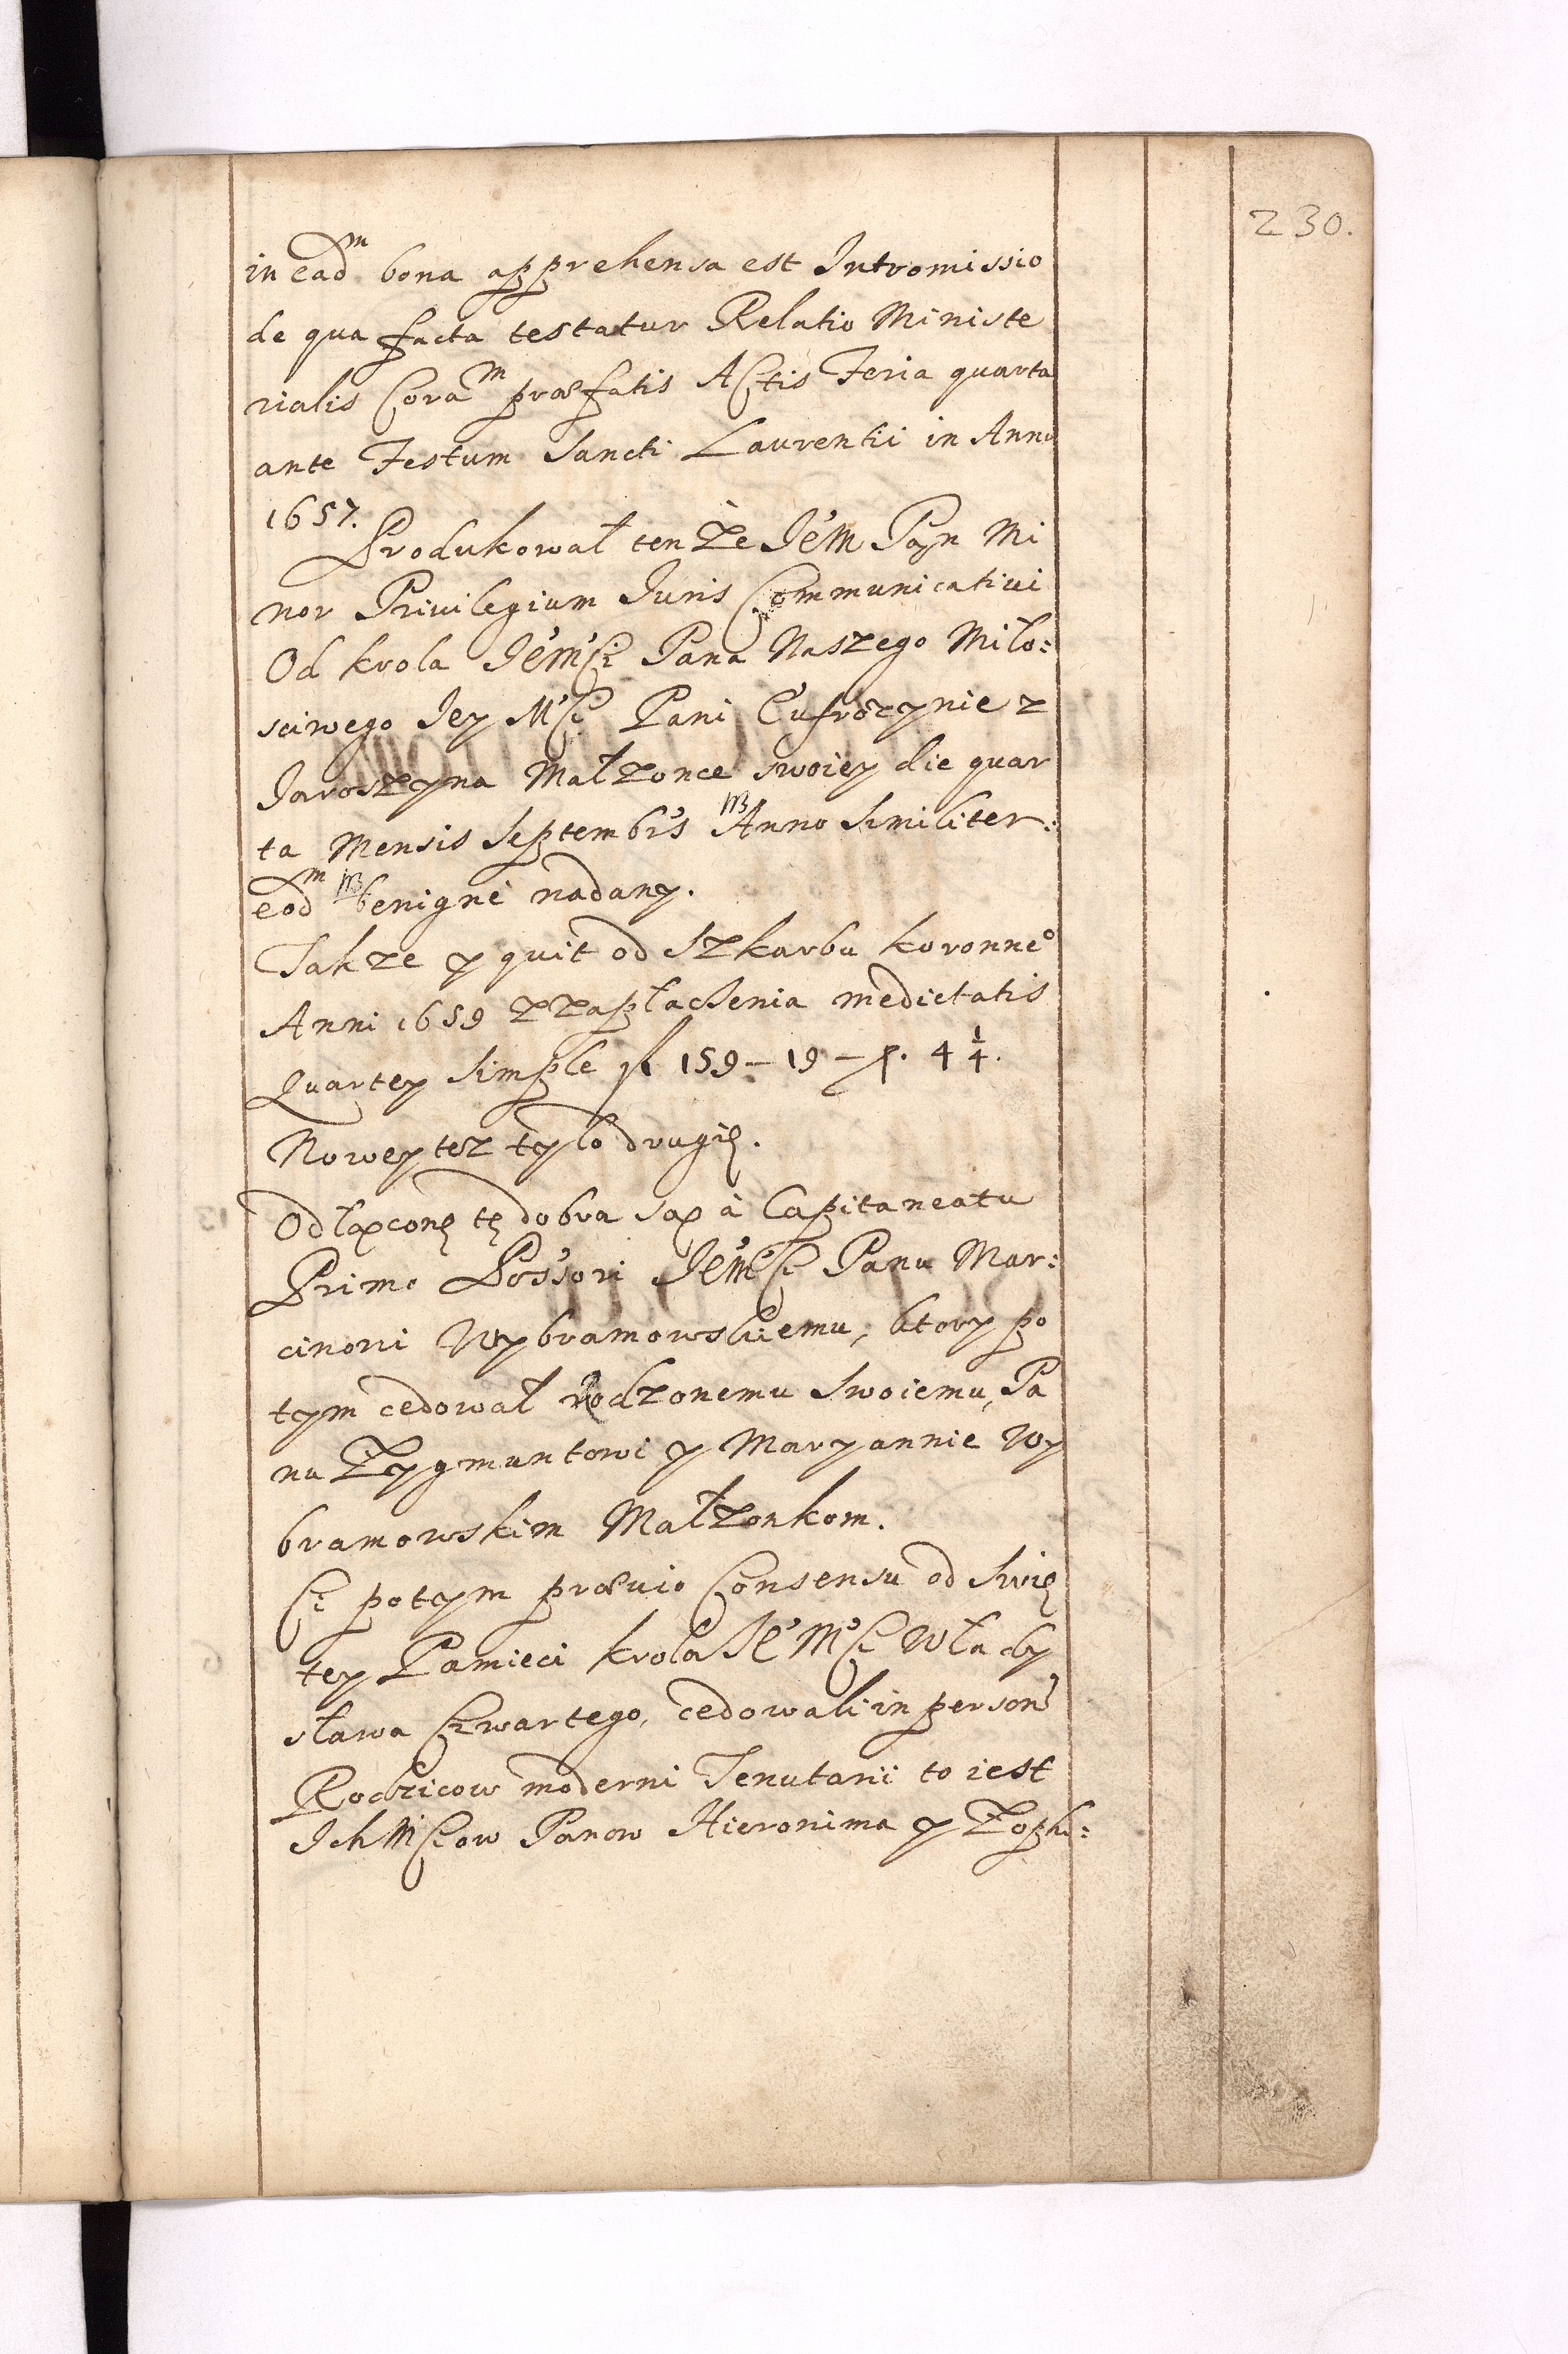 230.
in ead^m bona apprehensa est Intromissio
de qua facta testatur Relatio Ministe
rialis Cora^m præfatis Actis Feria quarta
ante Festum Sancti Laurentii in Anno
1657.
Produkował ten Ze JéM Pan Mi
nor Privilegium Juris Communicativi
Od krola JéMCi Pana Naszego Miło:
sciwego Jey MCi Pani Eufrozynie z
Jaroszyna Małzonce swoiey die quar
ta Mensis Septembris Anno Similiter:
eod^m benignè nadany.
Takze y quit od Szkarbu koronne°
Anni 1659 z zapłacenia medietatis
Quartey simple fl 159 – 19 – 4 1/4.
Nowey tez tylo drugię.
Odłączonę tę dobra są à Capitaneatu
Primo Possori JéMCi Panu Mar:
cinowi Wybramowskiemu, ktory po
tym cedował Rodzonemu Swoiemu, Pa
nu Zygmuntowi y Maryannie Wy
bramowskim Małzonkom.
Ci potym prævio Consensu od Swię
tey Pamieci krola JéMCi Wła dy
sława Czwartego, cedowali in person
Rodzicow moderni Tenutarii to iest
Ich MCiow Panow Hieronima y Zophi: